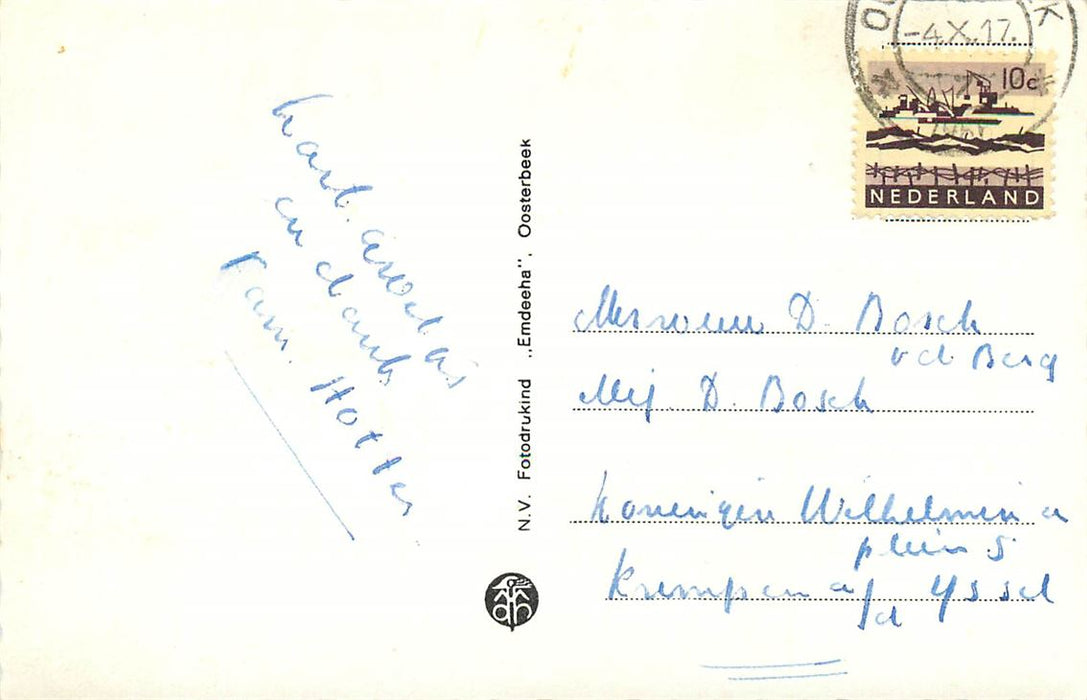 -4.X.17.
10c
NEDERLAND
Hart. Groetjes
en dank
Fam. Hotter
N.V. Fotodrukind „Emdeeha", Oosterbeek
Mevrouw D. Bosch
v d Berg
Mej. D. Bosch
Koningin Wilhelmina
plein 5
Krimpen a/d Yssel